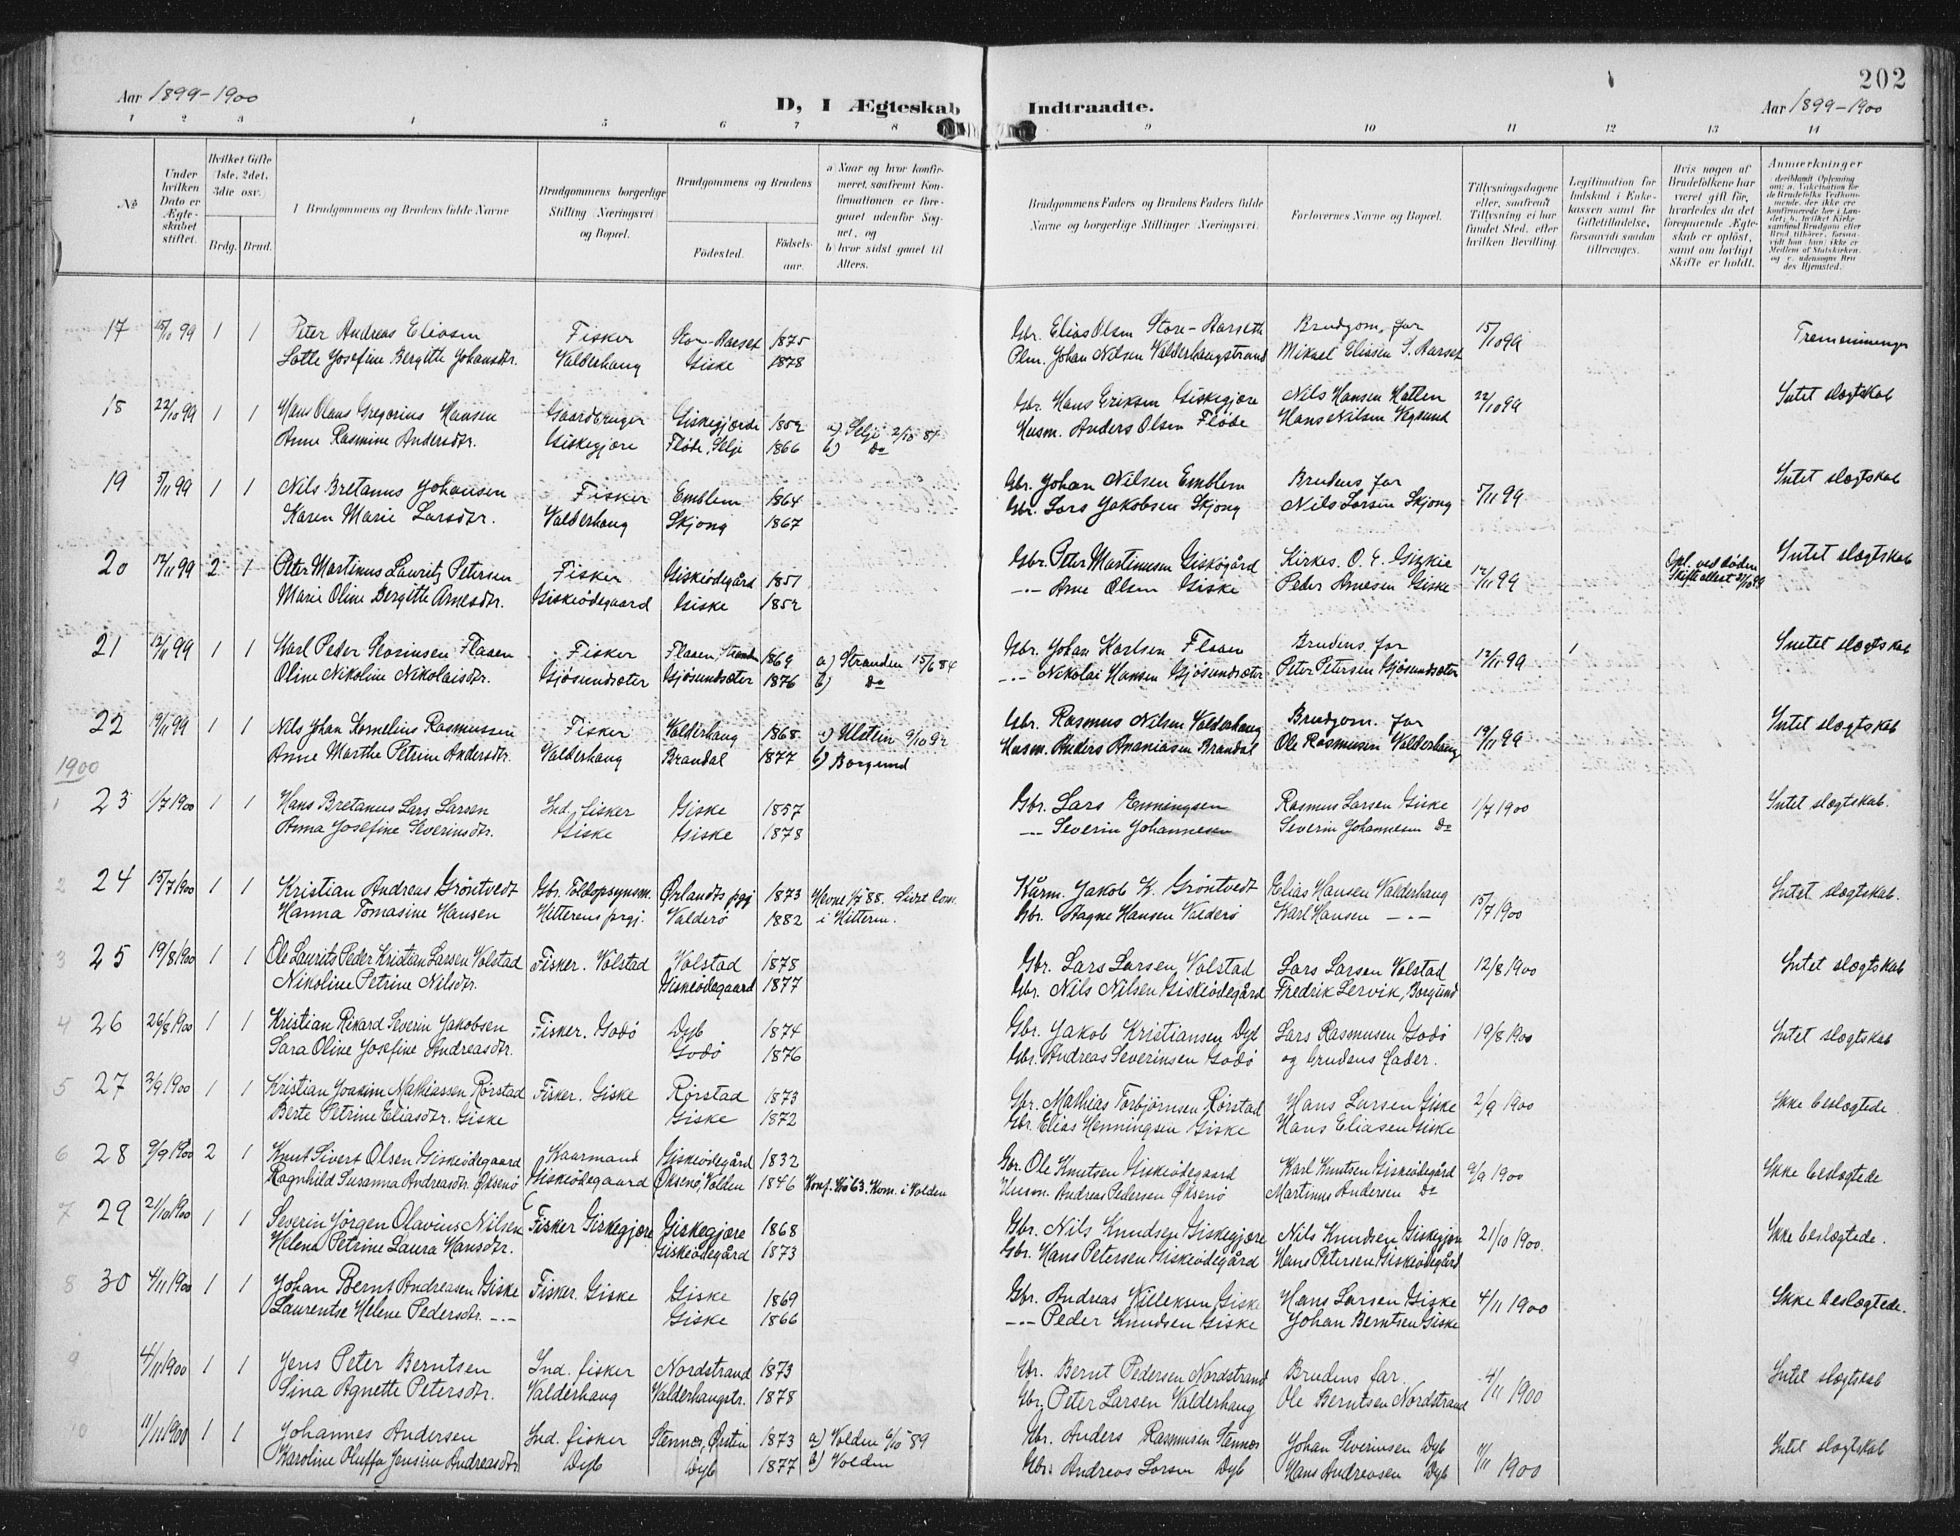 202
Aar 1899-1900
D, I Ægteskab Indtraadte.
Aar 1899-1900
1 2 3 4 5 6 7 8 9 10 11 12 13 14
№
Under hvilken Dato er Ægteskabet stiftet.
Hvilket Gifte 1ste, 2det, 3die osv.
Brdg. Brud.
I Brudgommens og Brudens fulde Navne
Brudgommens borgerlige Stilling Næringsvei og Bopæl.
Brudgommens og Brudens
Fødested.
Fødselsaar.
a Naar og hvor konfirmeret, saafremt Konfirmationen er foregaaet udenfor Sognet, og
b hvor sidst gaaet til Alters.
Brudgommens Faders og Brudens Faders fulde Navne og borgerlige Stillinger Næringsvei.
Forlovernes Navne og Bopæl.
Tillysningsdagene eller, saafremt Tillysning ei har fundet Sted, efter hvilken Bevilling.
Legitimation for Indskud i Enkekassen samt for Giftetilladelse, forsaavidt saadan tiltrænges.
Hvis nogen af Brudefolkene har været gift før, hvorledes da det foregaaende Ægteskab er opløst, samt om lovligt Skifte er holdt.
Anmærkninger
17 15/10 99 1 1 Peter Andreas Eliasen Fisker Store-Aarset 1875 Gbr. Elias Olsen Store-Aarseth Brudgom. far 15/10 99 Tremenninger
Lotte Josefine Bergitte Johansdtr. Valderhaug Giske 1878 Plm. Johan Nilsen Valderhaugstrand Mikael Elissen S. Aarset
18 22/10 99 1 1 Hans Olaus Gregorius Hansen Gaardbruger Giskegjerde 1852 a) Selje 2/10 81 Gbr. Hans Eriksen Giskegjære Nils Hansen Hatlen 22/10 99 Intet slægtskab
Anne Rasmine Andersdtr. Giskegjære Fløde, Selje 1866 b) Do Husm. Anders Olsen Fløde Hans Nilsen Vegsund
19 5/11 99 1 1 Nils Bretanus Johansen Fisker Emblem 1864 Gbr. Johan Nilsen Emblem Brudens far 5/11 99 Intet slægtskab
Karen Marie Larsdtr. Valderhaug Skjong 1867 Gbr. Lars Jakobsen Skjong Nils Larsen Skjong
20 12/11 99 2 1 Peter Martinus Lauritz Petersen Fisker Giskeødegård 1851 Gbr. Peter Martinusen Giskøgård Kirkes. O. E. Gizkie 12/11 99 Opl. ved døden Intet slægtskab
Marie Oline Bergitte Arnesdtr. Giskeødegaard Giske 1852 -- Arne Olsen Giske Peder Arnesen Giske
21 12/11 99 1 1 Karl Peder Flaaen Fisker Flaaen, Strand 1869 a) Stranden 15/6 84 Gbr. Johan Karlsen Flaaen Brudens far 12/11 99 1 Intet slægtskab
Oline Nikoline Nikolaisdtr. Gjøsundsæter Gjøsundsæter 1876 b) Do -- Nikolai Hansen Gjøsundsæter Peter Petersen Gjøsundsæter
22 19/11 99 1 1 Nils Johan Kornelius Rasmussen Fisker Valderhaug 1868 a) Ulstein 9/10 92 Gbr. Rasmus Nilsen Valderhaug Brudgom. far 19/11 99 Intet slægtskab
Anne Marthe Petrine Andersdtr. Valderhaug Brandal 1877 b) Borgund Husm. Anders Ananiasen Brandal Ole Rasmusen Valderhaug
1900
1 23 1/7 1900 1 1 Hans Bretanus Lars Larsen Ind. fisker Giske 1857 Gbr. Lars Enningsen Rasmus Larsen Giske 1/7 1900 Intet slægtskab.
Anna Josefine Severinsdtr. Giske Giske 1878 -- Severin Johannesen Severin Johannesen Do
2 24 15/7 1900 1 1 Kristian Andreas Grøntvedt Gbr. Toldopsynsm. Ørlandts prgj 1873 Hevne 88. i Hitteren. Kårm. Jakob K. Grøntvedt Elias Hansen Valderhaug 15/7 1900 Intet slægtskab.
Hanna Tomasine Hansen Hitterens prgj. Valderø 1882 Gbr. Stagne Hansen Valderø Karl Hansen --
3 25 19/8 1900 1 1 Ole Laurits Peder Kristian Larsen Valstad Fisker. Valstad Valstad 1878 Gbr. Lars Larsen, Valstad Lars Larsen Valstad 12/8 1900 Intet slægtskab
Nikoline Petrine Nilsdtr. Giskeødegaard 1877 Gbr. Nils Nilsen Giskeødegård Fredrik Lervik, Borgund
4 26 26/8 1900 1 1 Kristian Rikard Severin Jakobsen Fisker. Godø Dyb 1874 Gbr. Jakob Kristiansen Dyb Lars Rasmusen Godø 19/8 1900 Intet slægtskab
Sara Oline Josefine Andreasdtr. Godø 1876 Gbr. Andreas Severinsen Godø og brudens fader.
5 27 2/9 1900 1 1 Kristian Joakim Mathiassen Rørstad Fisker. Giske Rørstad 1873 Gbr. Mathias Torbjørnsen Rørstad Hans Larsen Giske 2/9 1900 Ikke beslægtede
Berte Petrine Eliasdtr. Giske Giske 1872 Gbr. Elias Henningsen Giske Hans Eliasen Giske
6 28 9/9 1900 2 1 Knut Sivert Olsen Giskeødegaard Kaarmand Giskeødegård 1832 Gbr. Ole Knutsen Giskeødegaard Karl Knutsen Giskeødegård 9/9 1900 Ikke beslægtede
Ragnhild Susanna Andreasdtr. Øksenø Giskeødegaard Øksenø, Volden 1846 Konf. 63. Kom. i Volden Husm. Andreas Pedersen Øksenø Martinus Andersen Do
7 29 21/10 1900 1 1 Severin Jørgen Olavius Nilsen Fisker Giskegjære Giskegjære 1868 Gbr. Nils Knudsen Giskegjære Nils Knudsen Giskegjære 21/10 1900. Ikke beslægtede.
Helena Petrine Laura Hansdtr. Giskeødegård 1873 Gbr. Hans Petersen Giskeødegård Hans Petersen Giskeødegård
8 30 4/11 1900 1 1 Johan Bernt Andreasen Giske Fisker. Giske Giske 1869 Gbr. Andreas Villeksen Giske Hans Larsen Giske 4/11 1900 Ikke beslægtede.
Laurentse Helene Pedersdtr. -- Giske 1866 -- Peder Knudsen Giske Johan Berntsen Giske
9 4/11 1900 1 1 Jens Peter Berntsen Ind. fisker Nordstrand 1873 Gbr. Bernt Pedersen Nordstrand Brudens far. 4/11 1900 Intet slægtskab
Sina Agnette Petersdtr. Valderhaug Valderhaugstr. 1878 Gbr. Peter Larsen Valderhaug Ole Berntsen Nordstrand
10 11/11 1900 1 1 Johannes Andersen Ind. fisker Stennes, Ørsten 1873 a) Volden 6/10 89 Gbr. Anders Rasmusen Stennes Johan Severinsen Dyb 11/11 1900 Intet slægtskab
Karoline Oluffa Jensine Andreasdtr Dyb Dyb 1877 b) Volden Gbr. Andreas Larsen Dyb Hans Andreasen Dyb